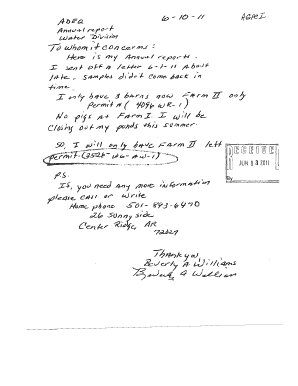 ADEQ 6-10-11 AGPCI
Annual report
Water Division
To whom it concerns:
Here is my Annual reports.
I sent off a letter 6-1-11 About
late. Samples didn't come back in
time.
I only have 3 barns now Farm II only
Permit # ( 4096 WR-1)
No pigs at Farm I. I will be
closing out my ponds this summer.
So, I will only have Farm II left
permit (3525-WG-AW-1)
RECEIVED
JUN 13 2011
By
P.S.
If, you need any more information
please call or write
Home phone 501-893-6470
26 Sunnyside
Center Ridge, AR
72027
Thank you
Beverly A. Williams
Beverly A Williams